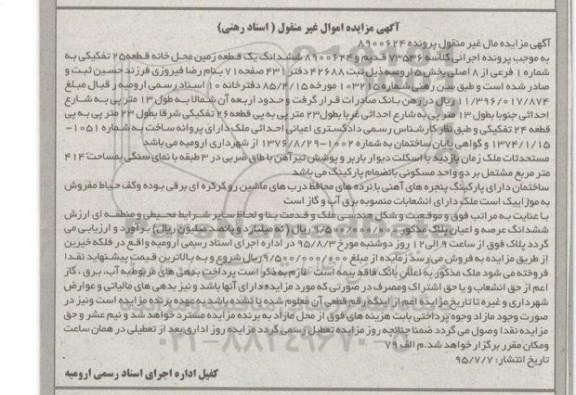 آگهی مزایده اموال غیر منقول ( اسناد رهنی)
آگهی مزایده مال غیر منقول پرونده ۸۹۰۰۶۲۴
به موجب پرونده اجرائی کلاسه ۷۳۵۳۶ قدیم و ۸۹۰۰۶۲۴ ششدانگ یک قطعه زمین محل خانه قطعه۲۵ تفکیکی به
شماره ۱ فرعی از ۸ اصلی بخش ۵ ارومیه ذیل ثبت ۴۲۶۸۸ دفتر ۴۳۱ صفحه ۷۱ بنام رضا فیروزی فرزند حسین ثبت و
صادر شده است و طبق سن رهنی شماره ۱۰۳۲۱۵ مورخه ۸۵/۴/۱۵ دفترخانه ۱۰ اسناد رسمی ارومیه ر قبال مبلغ
۱۱/۳۹۶/۰۱۷/۸۷۴ ریال در رهن بانک صادرات قرار گرفت و حدود اربعه آن شمالا به طول ۱۳ متر پی به شارع
احداثی جنوبا بطول ۱۳ متر پی به شارع احداثی غربا بطول۲۳ متر پی به پی قطعه ۲۶ تفکیکی شرقا بطول ۲۳ متر پی به پی
قطعه ۲۴ تفکیکی و طبق نظر کارشناس رسمی دادگستری اعیانی احداثی ملک دارای پروانه ساخت به شماره ۱۰۵۱-
۱۳۷۴/۱/۱۵ و گواهی پایان ساختمان به شماره ۱۰۰۲-۱۳۷۶/۸/۲۹ از شهرداری ارومیه می باشد
مستحدثات ملک زمان بازدید با اسکلت دیوار باربر و پوشش تیرآهن با طاق ضربی در ۳ طبقه با نمای سنگی بمساحت ۴۱۴
متر مربع مشتمل بر دو واحد مسکونی بانضمام پارکینگ می باشد
ساختمان دارای پارکینگ پنجره های آهنی با نرده های محافظ درب های ماشین رو کرکره ای برقی بوده وکف حیاط مفروش
به موزاییک است ملک دارای انشعابات منصوبه برق آب و گاز است
با عنایت به مراتب فوق و موقعیت و شکل هندسی ملک و قدمت بنا و لحاظ سایر شرایط محیطی و منطقه ای ارزش
ششدانگ عرصه و اعیان پلاک مذکور ریال (نه میلیارد و پانصد میلیون ریال) برآورد و ارزیابی می
گردد پلاک فوق از ساعت ۹ الی ۱۲ روز دوشنبه مورخ ۹۵/۸/۳ در اداره اجرای اسناد رسمی ارومیه واقع در فلکه خیرین
از طریق مزایده به فروش می رسد زمایده از مبلغ ۹/۵۰۰/۰۰۰/۰۰۰ ریال شروع و به بالاترین قیمت پیشنهاید نقدا
فروخته می شود ملک مذکور به اعلان بانک فاقد بیمه است . لازم به ذکر است پرداخت بدهی های مربوطه آب ، برق ، گاز
اعم از حق انشعاب و یا حق اشتراک ومصرف در صورتی که مورد مزایده دارای آنها باشد و نیز بدهی های مالیاتی و عوارض
شهرداری و غیره تا تاریخ مزایده اعم از اینکه رقم قطعی آن معلوم شده یا نشده باشد به عهده برنده مزایده است ونیز در
صورت وجود مازاد وجوه پرداختی بابت هزینه های فوق از محل مازاد به برنده مزایده مسترد خواهد شد و نیم عشر و حق
مزایده نقدا وصول می گردد ضمنا چنانچه روز مزایده تعطیل رسمی گردد مزایده روز اداری بعد از تعطیلی در همان ساعت
ومکان مقرر برگزار خواهد شد.م الف ۷۹
تاریخ انتشار: ۹۵/۷/۷
کفیل اداره اجرای اسناد رسمی ارومیه
۰۲۱-۸۸۳۴۹۶۷۰